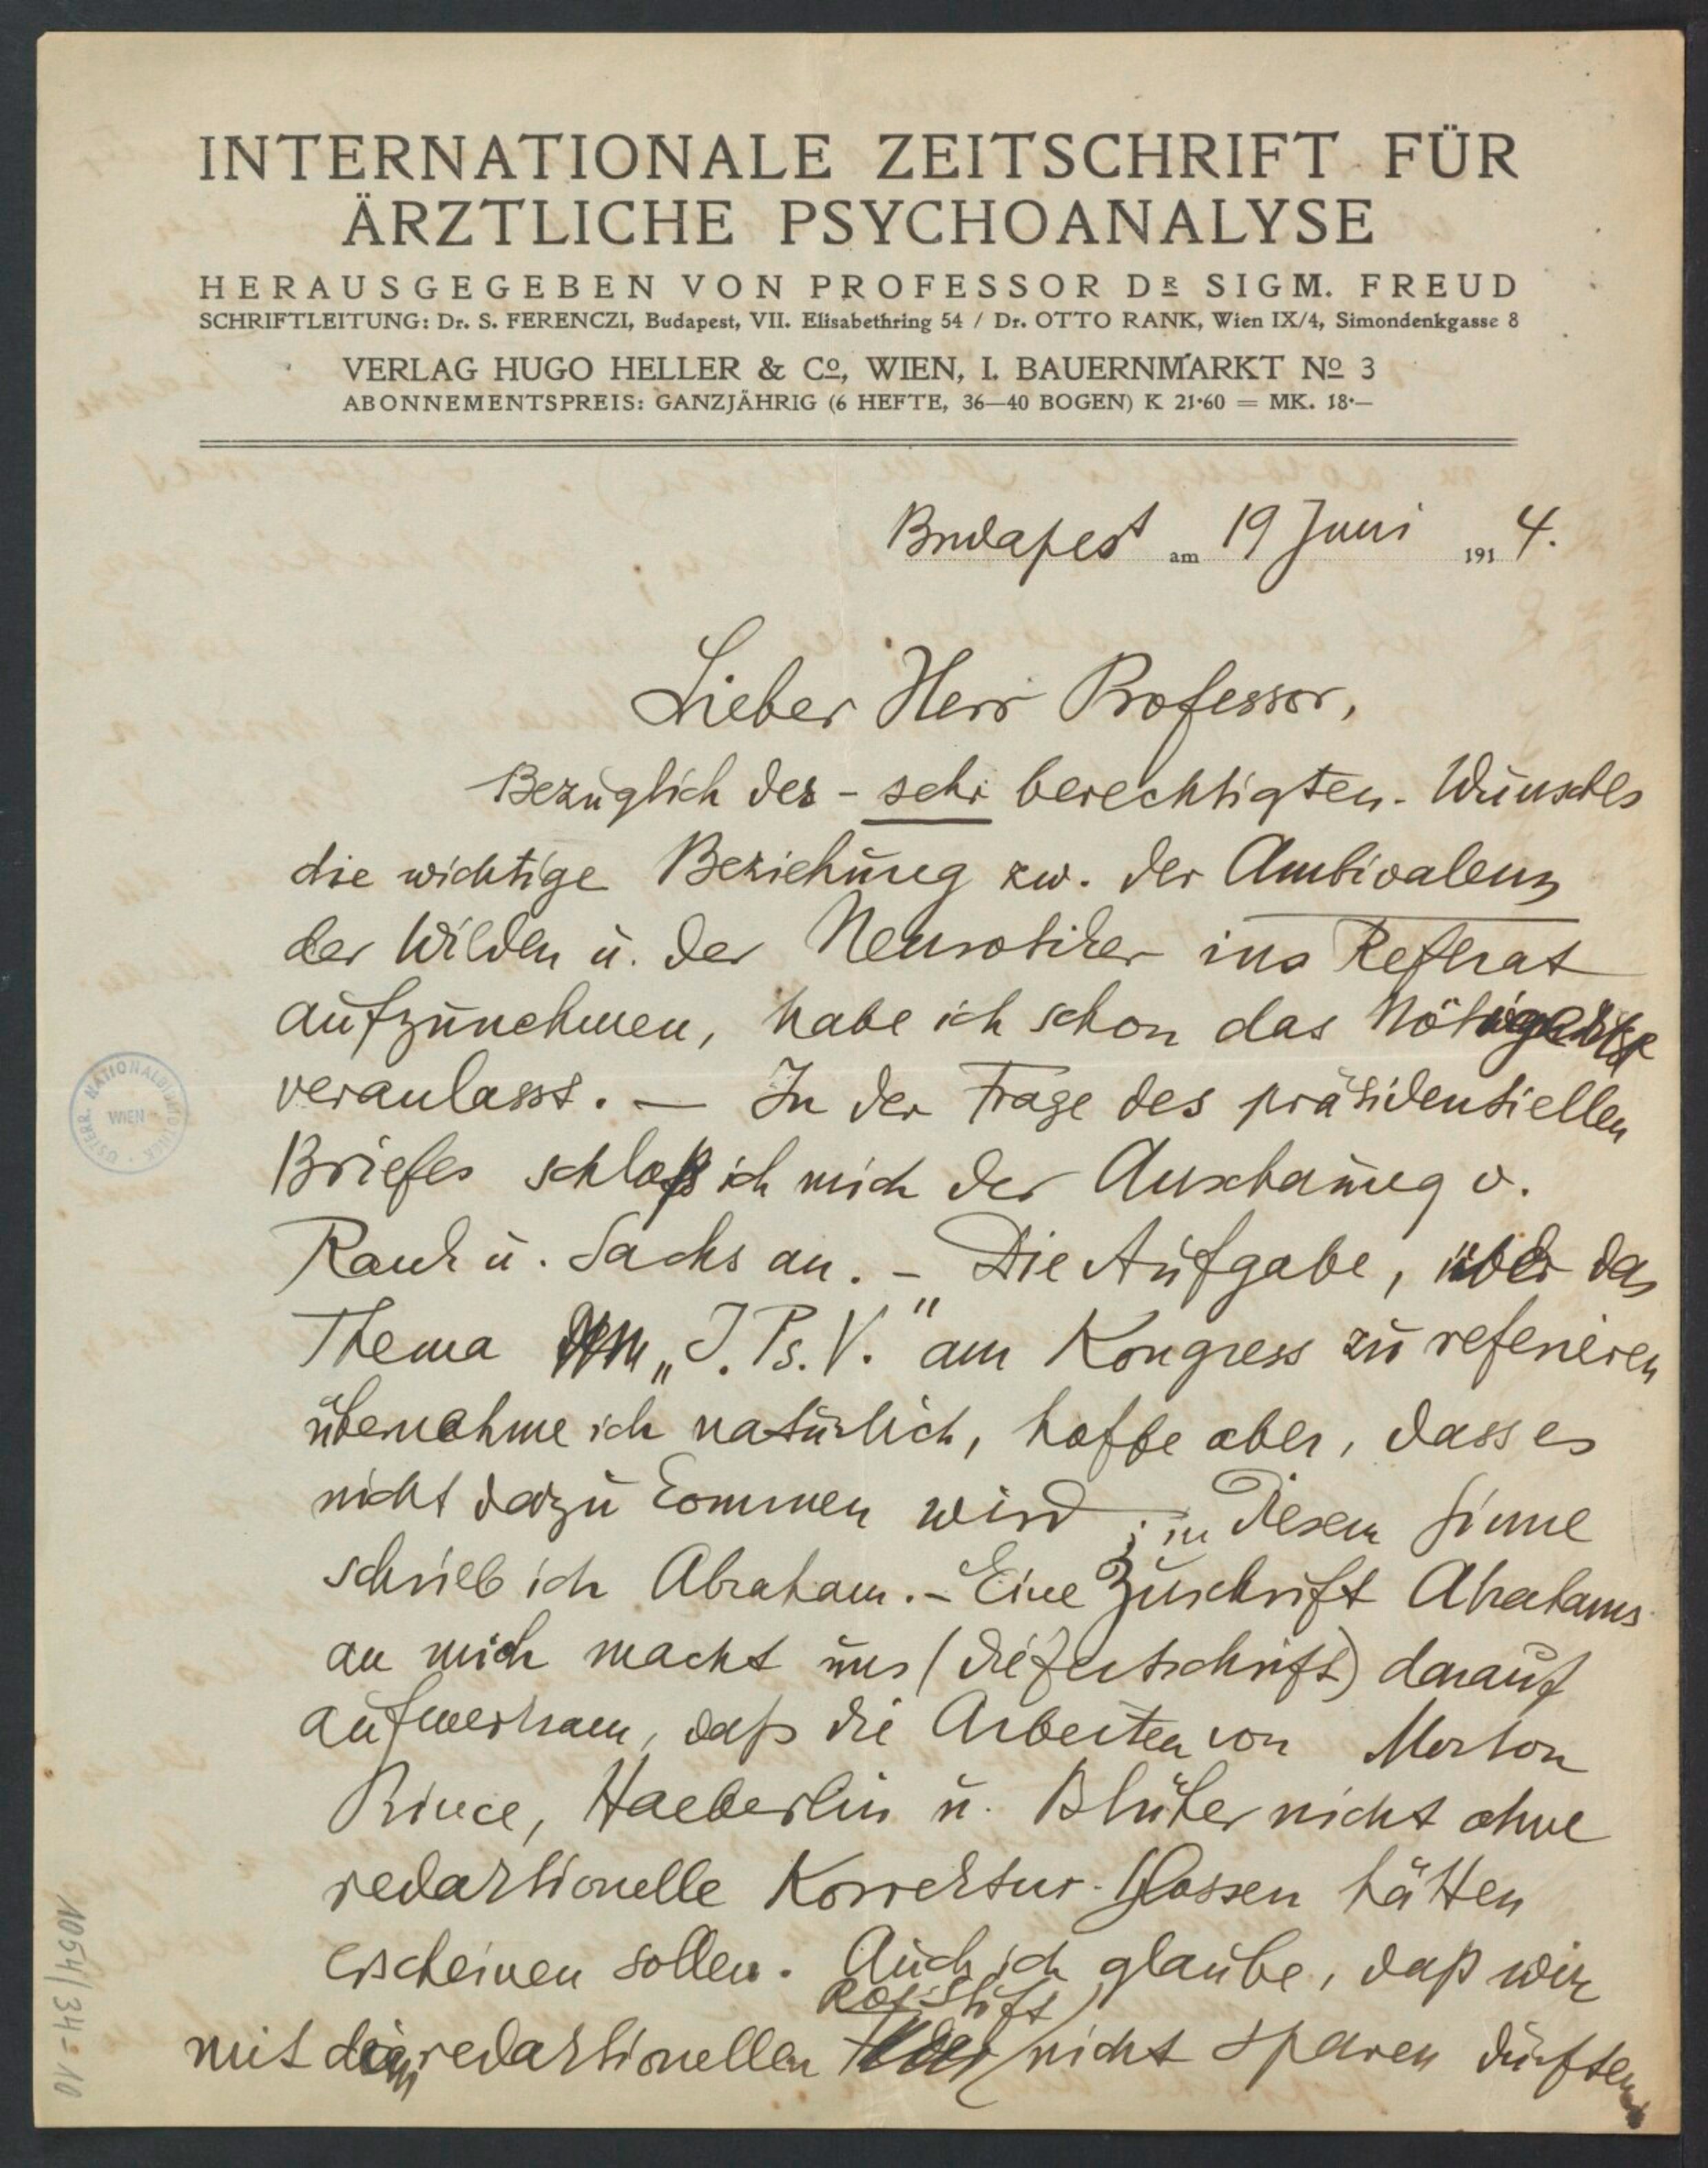 INTERNATIONALE ZEITSCHRIFT FÜR
ÄRZTLICHE PSYCHOANALYSE
HERAUSGEGEBEN VON PROFESSOR DR SIGM. FREUD
SCHRIFTLEITUNG: Dr. S. FERENCZI, Budapest, VII. Elisabethring 54 / Dr. OTTO RANK, Wien IX/4, Simondenkgasse 8
VERLAG HUGO HELLER & Co, WIEN, I. BAUERNMARKT No 3
ABONNEMENTSPREIS: GANZJÄHRIG (6 HEFTE, 36—40 BOGEN) K 21·60 = MK. 18·—
Budapest am 19 Juni 1914.
Lieber Herr Professor,
Bezüglich des - sehr berechtigten - Wunsches
die wichtige Beziehung zw. der Ambivalenz
der Wilden u. der Neurotiker ins Referat
aufzunehmen, habe ich schon das Nötige
veranlasst. — In der Frage des präsidentiellen
Briefes schloß ich mich der Anschauung v.
Rank u. Sachs an. - Die Aufgabe, über das
Thema „J. Ps. V." am Kongress zu referieren
übernehme ich natürlich, hoffe aber, dass es
nicht dazu kommen wird; in diesem Sinne
schrieb ich Abraham. - Eine Zuschrift Abrahams
an mich macht uns (die Zeitschrift) darauf
aufmerksam, daß die Arbeiten von Morton
Prince, Haeberlin u. Blüher nicht ohne
redaktionelle Korrektur-Glossen hätten
erscheinen sollen. Auch ich glaube, daß wir
mit dem redaktionellen Rotstift nicht sparen dürften
ÖSTERR. NATIONALBIBLIOTHEK WIEN
1054/34-10